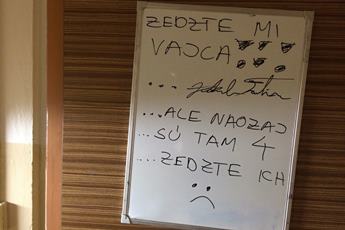 ZEDZTE MI
VAJCA
...
...ALE NAOZAJ
...SÚ TAM 4
...ZEDZTE ICH